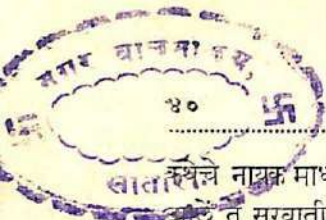 नगर वाचनालय,
४०
सातारा.
कथेचे नायक माध
आले ते सुरवाती